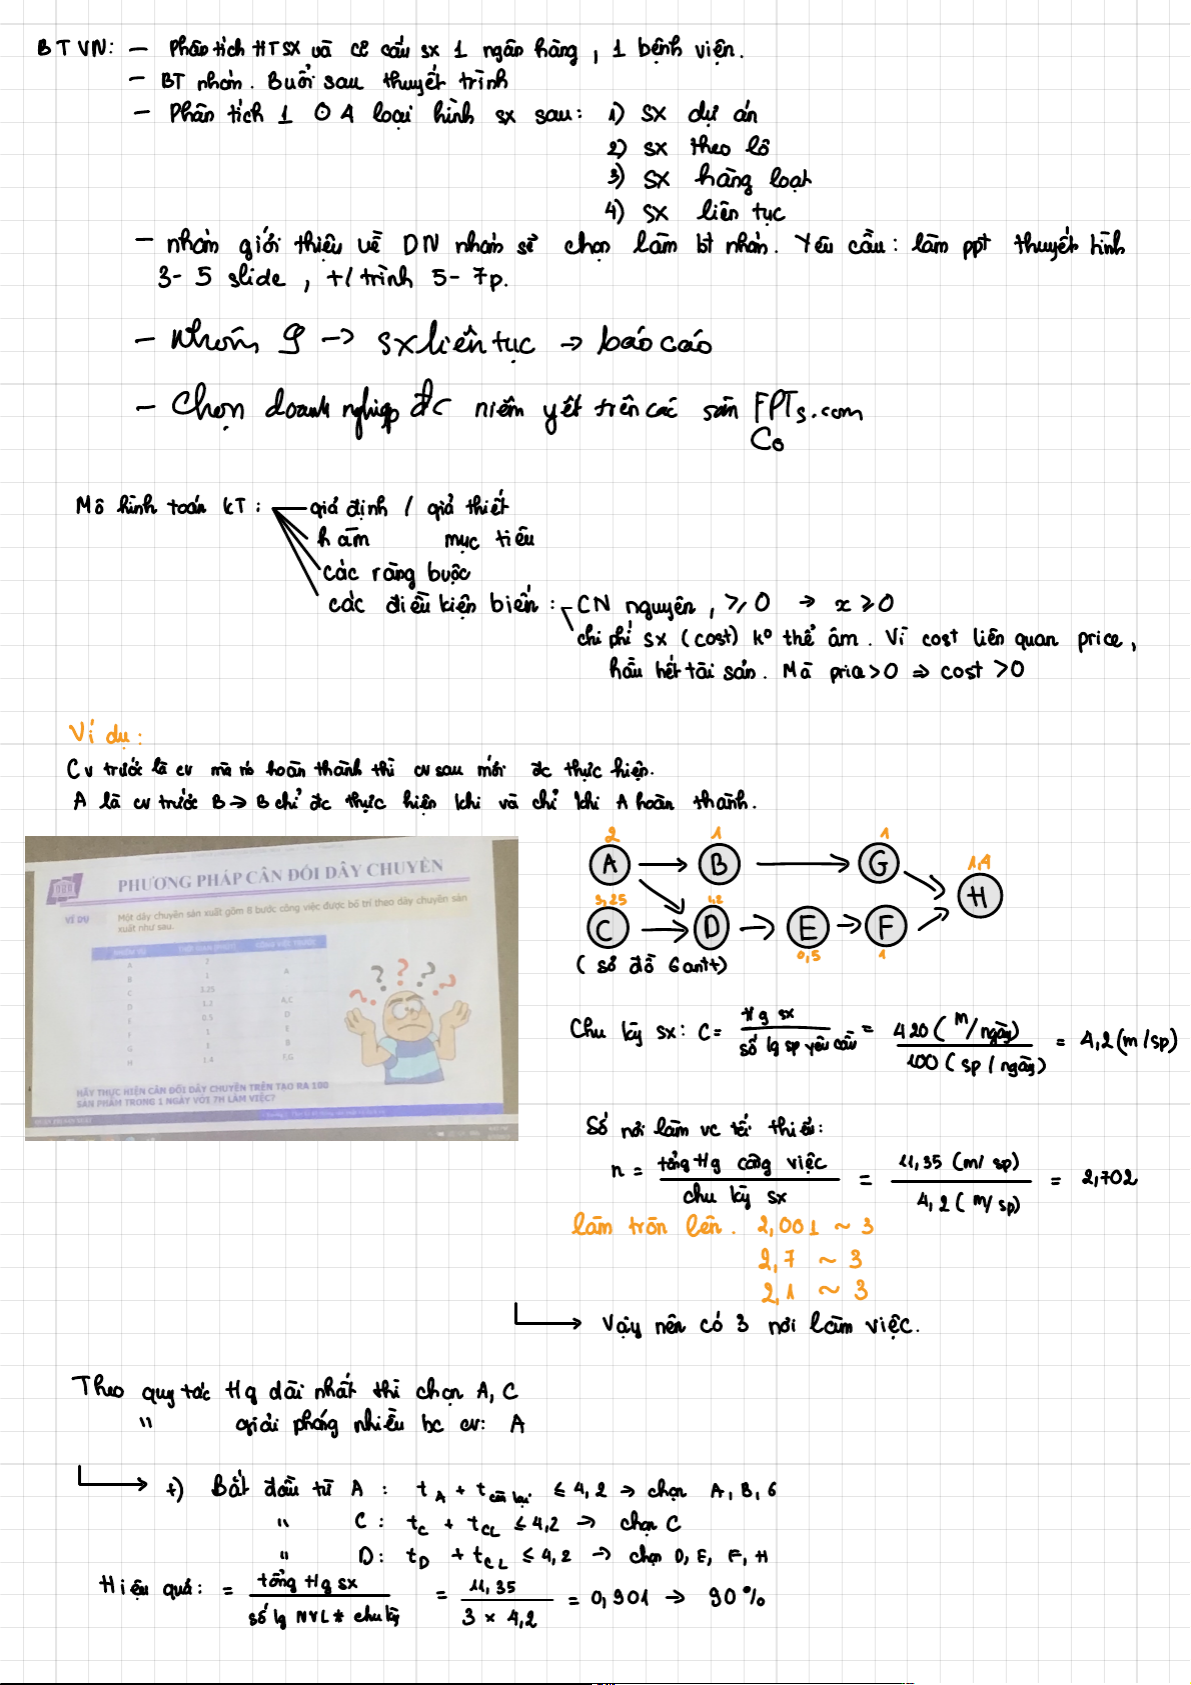 BTVN: – Phân tích HTSX và cơ cấu sx 1 ngân hàng, 1 bệnh viện.
– BT nhóm. Buổi sau thuyết trình
– Phân tích 1 O 4 loại hình sx sau: 1) SX dự án
2) SX theo lô
3) SX hàng loạt
4) SX liên tục
– nhóm giới thiệu về DN nhóm sẽ chọn làm bt nhóm. Yêu cầu: làm ppt thuyết trình
3-5 slide, t/trình 5-7p.
– Nhóm 9 → sx liên tục → báo cáo
– Chọn doanh nghiệp đc niêm yết trên các sàn FPTs.com
Co
Mô hình toán KT: giả định / giả thiết
hàm mục tiêu
các ràng buộc
các điều kiện biến: CN nguyên, ≥ 0 → x ≥ 0
chi phí sx (cost) ko thể âm. Vì cost liên quan price,
hầu hết tài sản. Mà price > 0 ⇒ cost > 0
Ví dụ:
Cv trước là cv mà nó hoàn thành thì cv sau mới đc thực hiện.
A là cv trước B → B chỉ đc thực hiện khi và chỉ khi A hoàn thành.
PHƯƠNG PHÁP CÂN ĐỐI DÂY CHUYỀN
VÍ DỤ
Một dây chuyền sản xuất gồm 8 bước công việc được bố trí theo dây chuyền sản
xuất như sau.
A 2
B 1 A
C 3.25
D 1.2 A,C
E 0.5 D
F 1 E
G 1 B
H 1.4 F,G
HÃY THỰC HIỆN CÂN ĐỐI DÂY CHUYỀN TRÊN TẠO RA 100
SẢN PHẨM TRONG 1 NGÀY VỚI 7H LÀM VIỆC?
2 1 1 1,4
A B G H
3,25 1,2
C D E F
0,5 1
(sơ đồ Gantt)
Chu kỳ sx: C = Tg sx / số lg sp yêu cầu = 420 (m/ngày) / 100 (sp/ngày) = 4,2 (m/sp)
Số nơi làm vc tối thiểu:
n = tổng tg công việc / chu kỳ sx = 11,35 (m/sp) / 4,2 (m/sp) = 2,702
làm tròn lên. 2,001 ~ 3
2,7 ~ 3
2,1 ~ 3
Vậy nên có 3 nơi làm việc.
Theo quy tắc tg dài nhất thì chọn A, C
" giải phóng nhiều bc cv: A
+) Bắt đầu từ A: tA + tcòn lại ≤ 4,2 → chọn A, B, G
" C: tC + tCL ≤ 4,2 → chọn C
" D: tD + tCL ≤ 4,2 → chọn D, E, F, H
Hiệu quả: = tổng tg sx / số lg NVL * chu kỳ = 11,35 / 3 × 4,2 = 0,901 → 90%